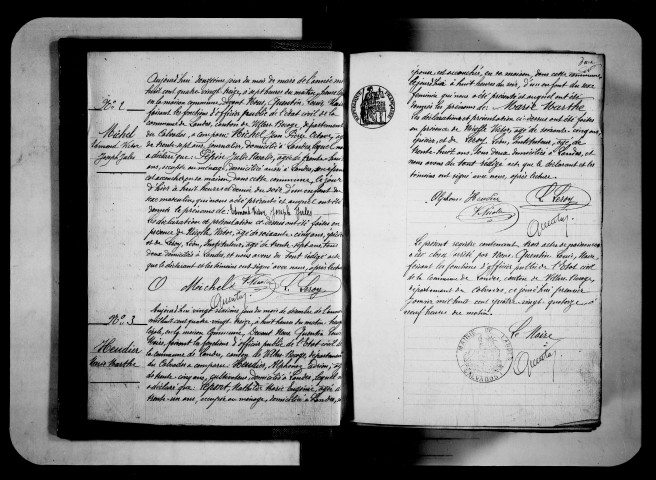 No 2
Michel
Edmond Victor
Joseph Jules
Aujourd'hui douzième jour du mois de mars de l'année mil
huit cent quatre vingt treize, à sept heures du matin,
en la maison commune, devant Nous, Quentin Louis Maire
faisant les fonctions d'officier public de l'état civil de la
commune de Landes, canton de Villers Bocage, département
du Calvados, a comparu Michel Jean Pierre
de trente sept ans, journalier, domicilié à Landes, lequel nous
a déclaré que Julie âgée de trente
ans, occupée au ménage, domiciliée aussi à Landes, son épouse
est accouchée en sa maison, dans cette commune, le jour
d'hier à huit heures et demie du soir d'un enfant du
sexe masculin, qui nous a été présenté et auquel ont été
donnés les prénoms de Edmond Victor Joseph Jules
les déclaration et présentation ci-dessus ont été faites en
présence de Nicolle Victor, âgé de soixante-cinq ans, épicier
et de Leroy, Léon, Instituteur, âgé de trente sept ans, tous
deux domiciliés à Landes, et nous avons du tout rédigé acte
que le déclarant et les témoins ont signé avec nous, après lecture.
O Michel V. Nicolle L. Leroy
Quentin
No 3
Heudier
Marie Marthe
Aujourd'hui vingt sixième jour du mois de décembre de l'année
mil huit cent quatre vingt treize, à huit heures du matin
en la maison Commune, Devant Nous Quentin Louis
Maire, faisant les fonctions d'officier public de l'état civil de
la commune de Landes, canton de Villers Bocage, département
du Calvados a comparu Heudier, Alphonse âgé
de trente-cinq ans, cultivateur, domicilié à Landes, lequel nous
a déclaré que Mathilde Marie Eugénie, âgée de
trente-un ans, occupée au ménage, domiciliée à Landes, son
épouse, est accouchée, en sa maison, dans cette commune
aujourd'hui à heures du soir, d'un enfant du sexe
féminin qui nous a été présenté et auquel ont été
donnés les prénoms de Marie Marthe
les déclaration et présentation ci-dessus ont été faites
en présence de Nicolle Victor, âgé de soixante-cinq ans,
épicier, et de Leroy, Léon, instituteur, âgé de
trente-huit ans, tous deux domiciliés à Landes, et
nous avons du tout rédigé acte que le déclarant et les
témoins ont signé avec nous, après lecture.
Alphonse Heudier L. Leroy
V. Nicolle
Quentin
Le présent registre contenant trois actes de naissances
a été clos et arrêté par Nous, Quentin Louis, Maire,
faisant les fonctions d'officier public de l'état civil
de la commune de Landes, canton de Villers Bocage,
département du Calvados, ce jourd'hui premier
janvier mil huit cent quatre-vingt quatorze, à
neuf heures du matin.
Le Maire
Quentin
MAIRIE DE LANDES
CALVADOS